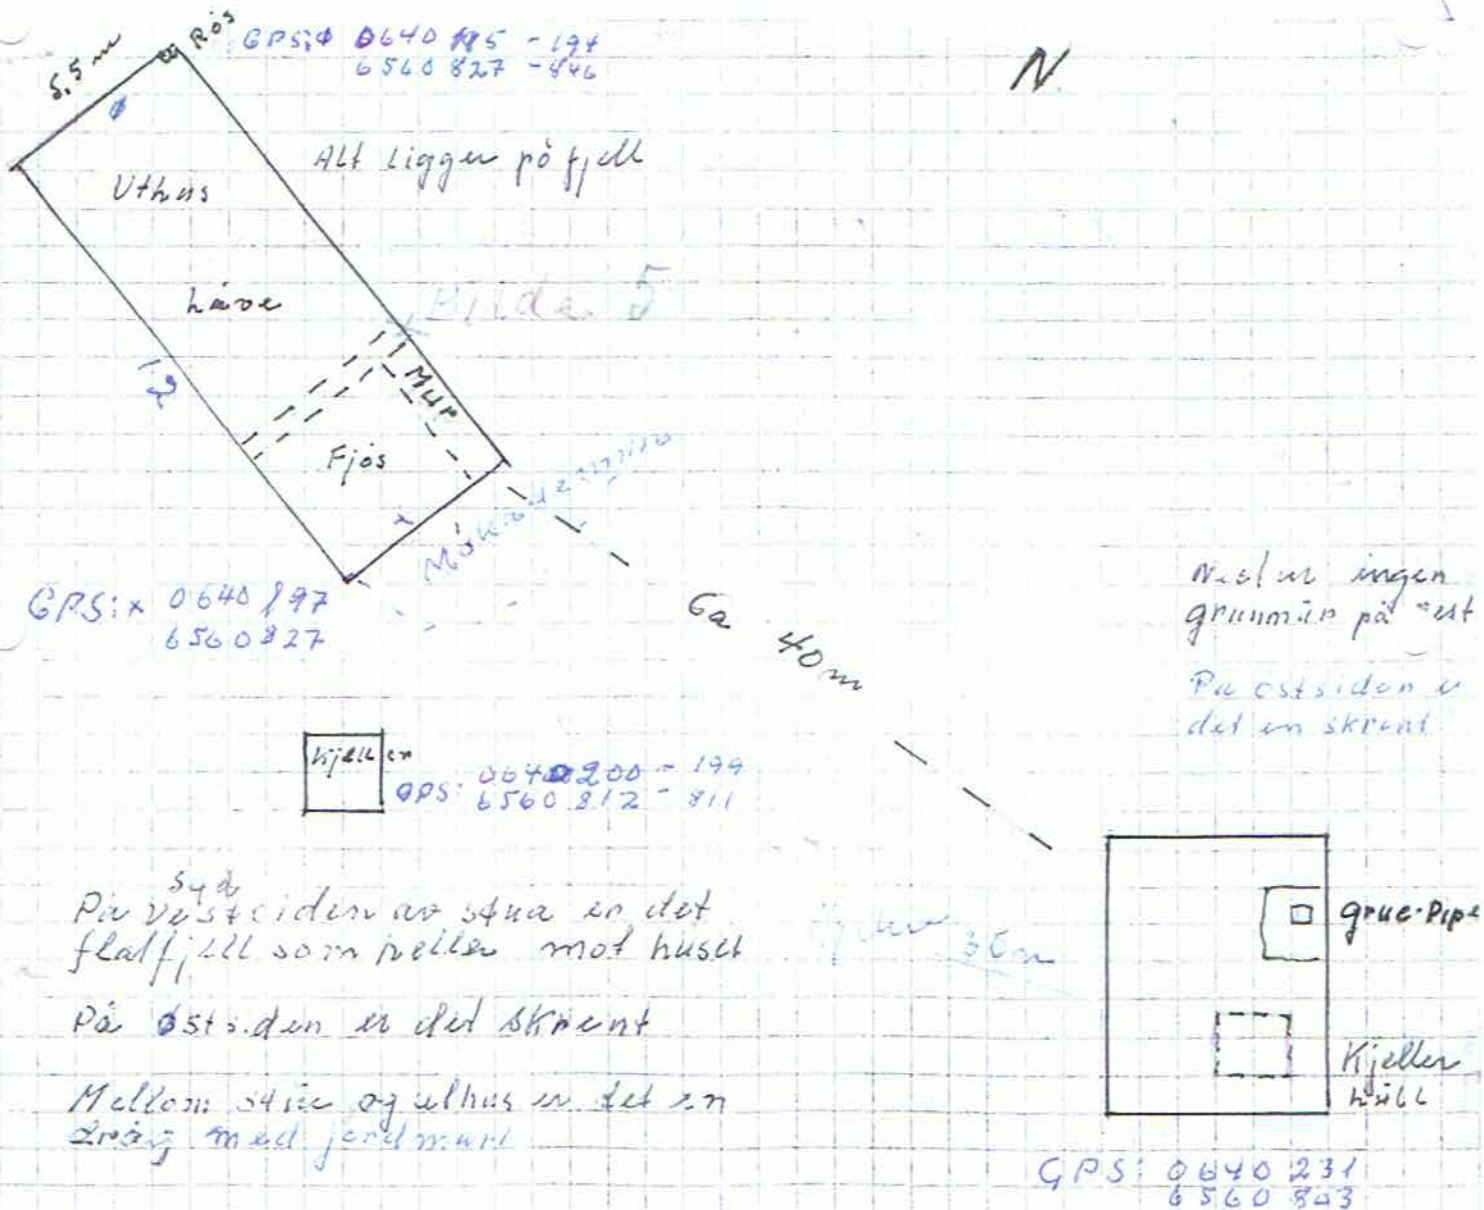 5,5 m
Rós
GPS:φ 0640 185 - 194
6560 827 - 846
N
Alt Ligger på fjell
Uthus
Låve
Bilde 5
12
Mur
Fjøs
GPS:x 0640 197
6560 827
Ca 40 m
ingen
grunmur på
På østsiden er
det en skrent
Kjeller
GPS: 0640 200 - 199
6560 812 - 811
Syd
På vestsiden av stua er det
flatfjell som heller mot huset
På østsiden er det skrent
Mellom stue og uthus er det en
dråg med jordmark
36 m
grue-Pipe
Kjeller
hull
GPS: 0640 231
6560 803